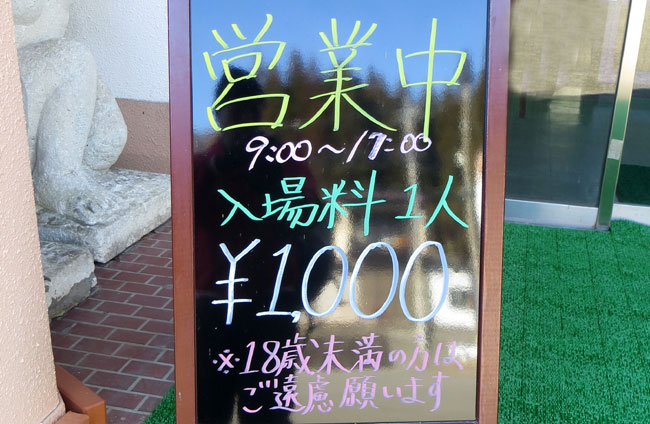 営業中
9:00～17:00
入場料 1人
¥1,000
※18歳未満の方は
ご遠慮願います